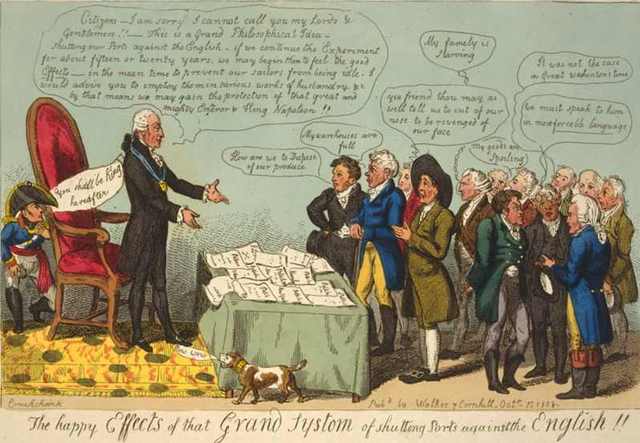 Citizens – I am sorry I cannot call you my Lords &
Gentlemen!! – This is a Grand Philosophical Idea –
shutting our Ports against the English – if we continue the Experiment
for about fifteen or twenty years, we may begin then to feel the good
Effects – in the mean time to prevent our sailors from being idle. I
would advise you to employ them in various works of husbandry &c
by that means we may gain the protection of that great and
mighty Emperor & King Napoleon!!
You shall be King
hereafter
How are we to Dispose
of our produce
My warehouses are
full
My family is
starving
yea friend thou may as
well tell us to cut of our
nose to be revenged of
our face
My goods are
Spoiling
It was not the case
in Great Washington's time
we must speak to him
in more forceble language
Bow wow
Cruikshank
Pubd by Walker 7 Cornhill Octr 15 1808
The happy Effects of that Grand Systom of shutting Ports against the English!!